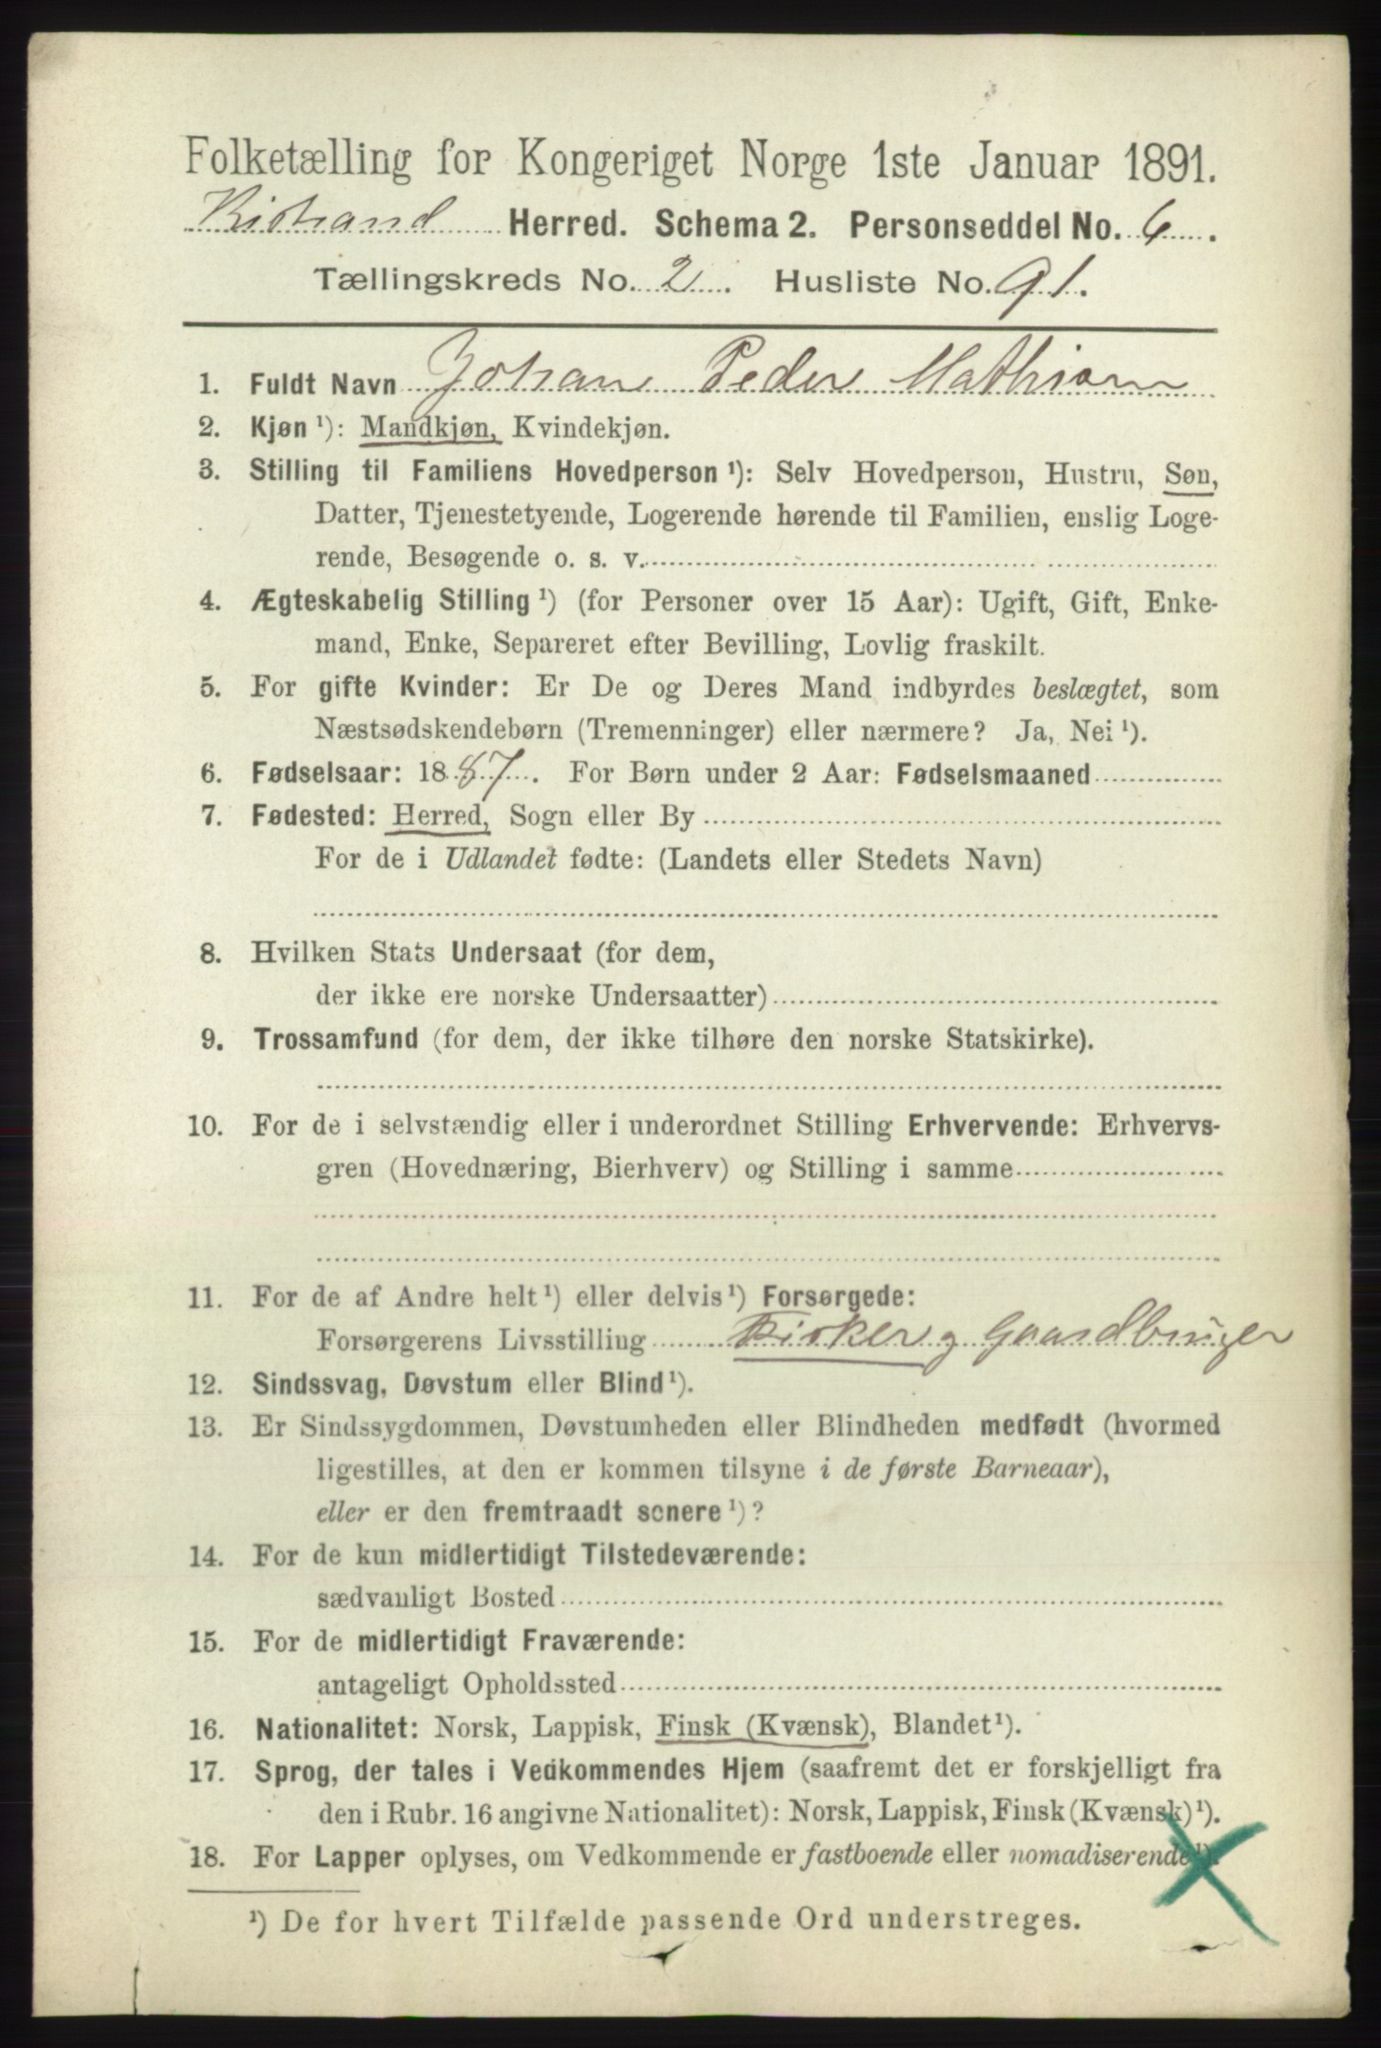 Folketælling for Kongeriget Norge 1ste Januar 1891.
Kistrand Herred. Schema 2. Personseddel No. 6.
Tællingskreds No. 2. Husliste No. 91.
1. Fuldt Navn Johan Peder Mathisen
2. Kjøn ¹): Mandkjøn, Kvindekjøn.
3. Stilling til Familiens Hovedperson ¹): Selv Hovedperson, Hustru, Søn,
Datter, Tjenestetyende, Logerende hørende til Familien, enslig Loge-
rende, Besøgende o. s. v.
4. Ægteskabelig Stilling ¹) (for Personer over 15 Aar): Ugift, Gift, Enke-
mand, Enke, Separeret efter Bevilling, Lovlig fraskilt.
5. For gifte Kvinder: Er De og Deres Mand indbyrdes beslægtet, som
Næstsødskendebørn (Tremenninger) eller nærmere? Ja, Nei ¹).
6. Fødselsaar: 1887. For Børn under 2 Aar: Fødselsmaaned
7. Fødested: Herred, Sogn eller By
For de i Udlandet fødte: (Landets eller Stedets Navn)
8. Hvilken Stats Undersaat (for dem,
der ikke ere norske Undersaatter)
9. Trossamfund (for dem, der ikke tilhøre den norske Statskirke).
10. For de i selvstændig eller i underordnet Stilling Erhvervende: Erhvervs-
gren (Hovednæring, Bierhverv) og Stilling i samme
11. For de af Andre helt ¹) eller delvis ¹) Forsørgede:
Forsørgerens Livsstilling Fisker og Gaardbruger
12. Sindssvag, Døvstum eller Blind ¹).
13. Er Sindssygdommen, Døvstumheden eller Blindheden medfødt (hvormed
ligestilles, at den er kommen tilsyne i de første Barneaar),
eller er den fremtraadt senere ¹)?
14. For de kun midlertidigt Tilstedeværende:
sædvanligt Bosted
15. For de midlertidigt Fraværende:
antageligt Opholdssted
16. Nationalitet: Norsk, Lappisk, Finsk (Kvænsk), Blandet ¹).
17. Sprog, der tales i Vedkommendes Hjem (saafremt det er forskjelligt fra
den i Rubr. 16 angivne Nationalitet): Norsk, Lappisk, Finsk (Kvænsk) ¹).
18. For Lapper oplyses, om Vedkommende er fastboende eller nomadiserende ¹).
¹) De for hvert Tilfælde passende Ord understreges.